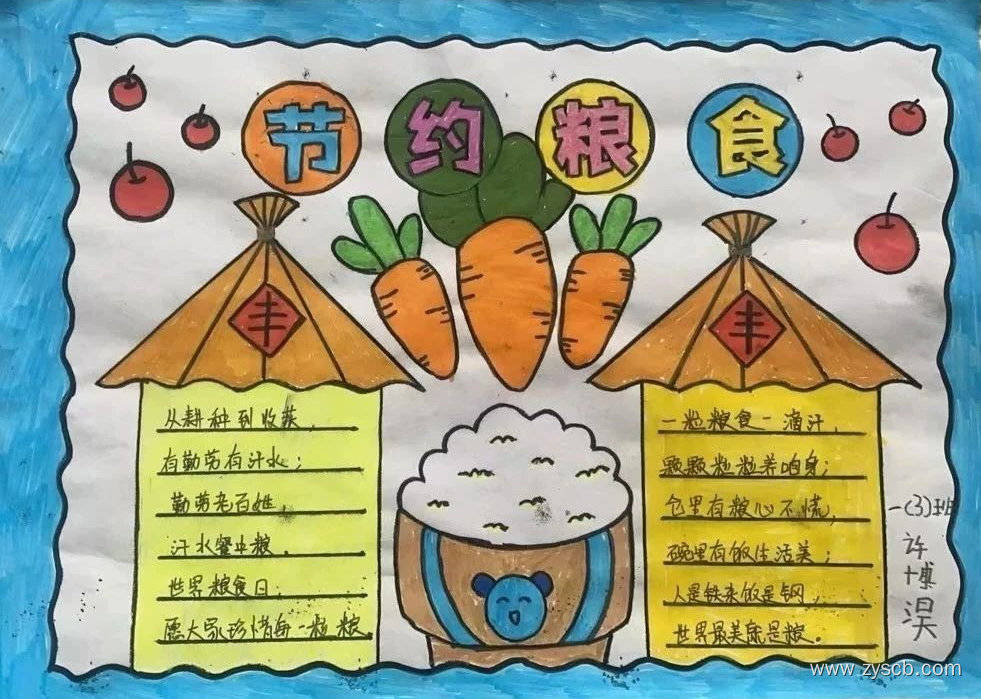 节约粮食
丰
丰
从耕种到收获,
有勤劳有汗水;
勤劳老百姓,
汗水餐中粮。
世界粮食日;
愿大家珍惜每一粒粮
一粒粮食一滴汗,
颗颗粒粒养咱身;
仓里有粮心不慌,
碗里有饭生活美;
人是铁来饭是钢,
世界最美就是粮。
一(3)班
许博淏
www.zyscb.com